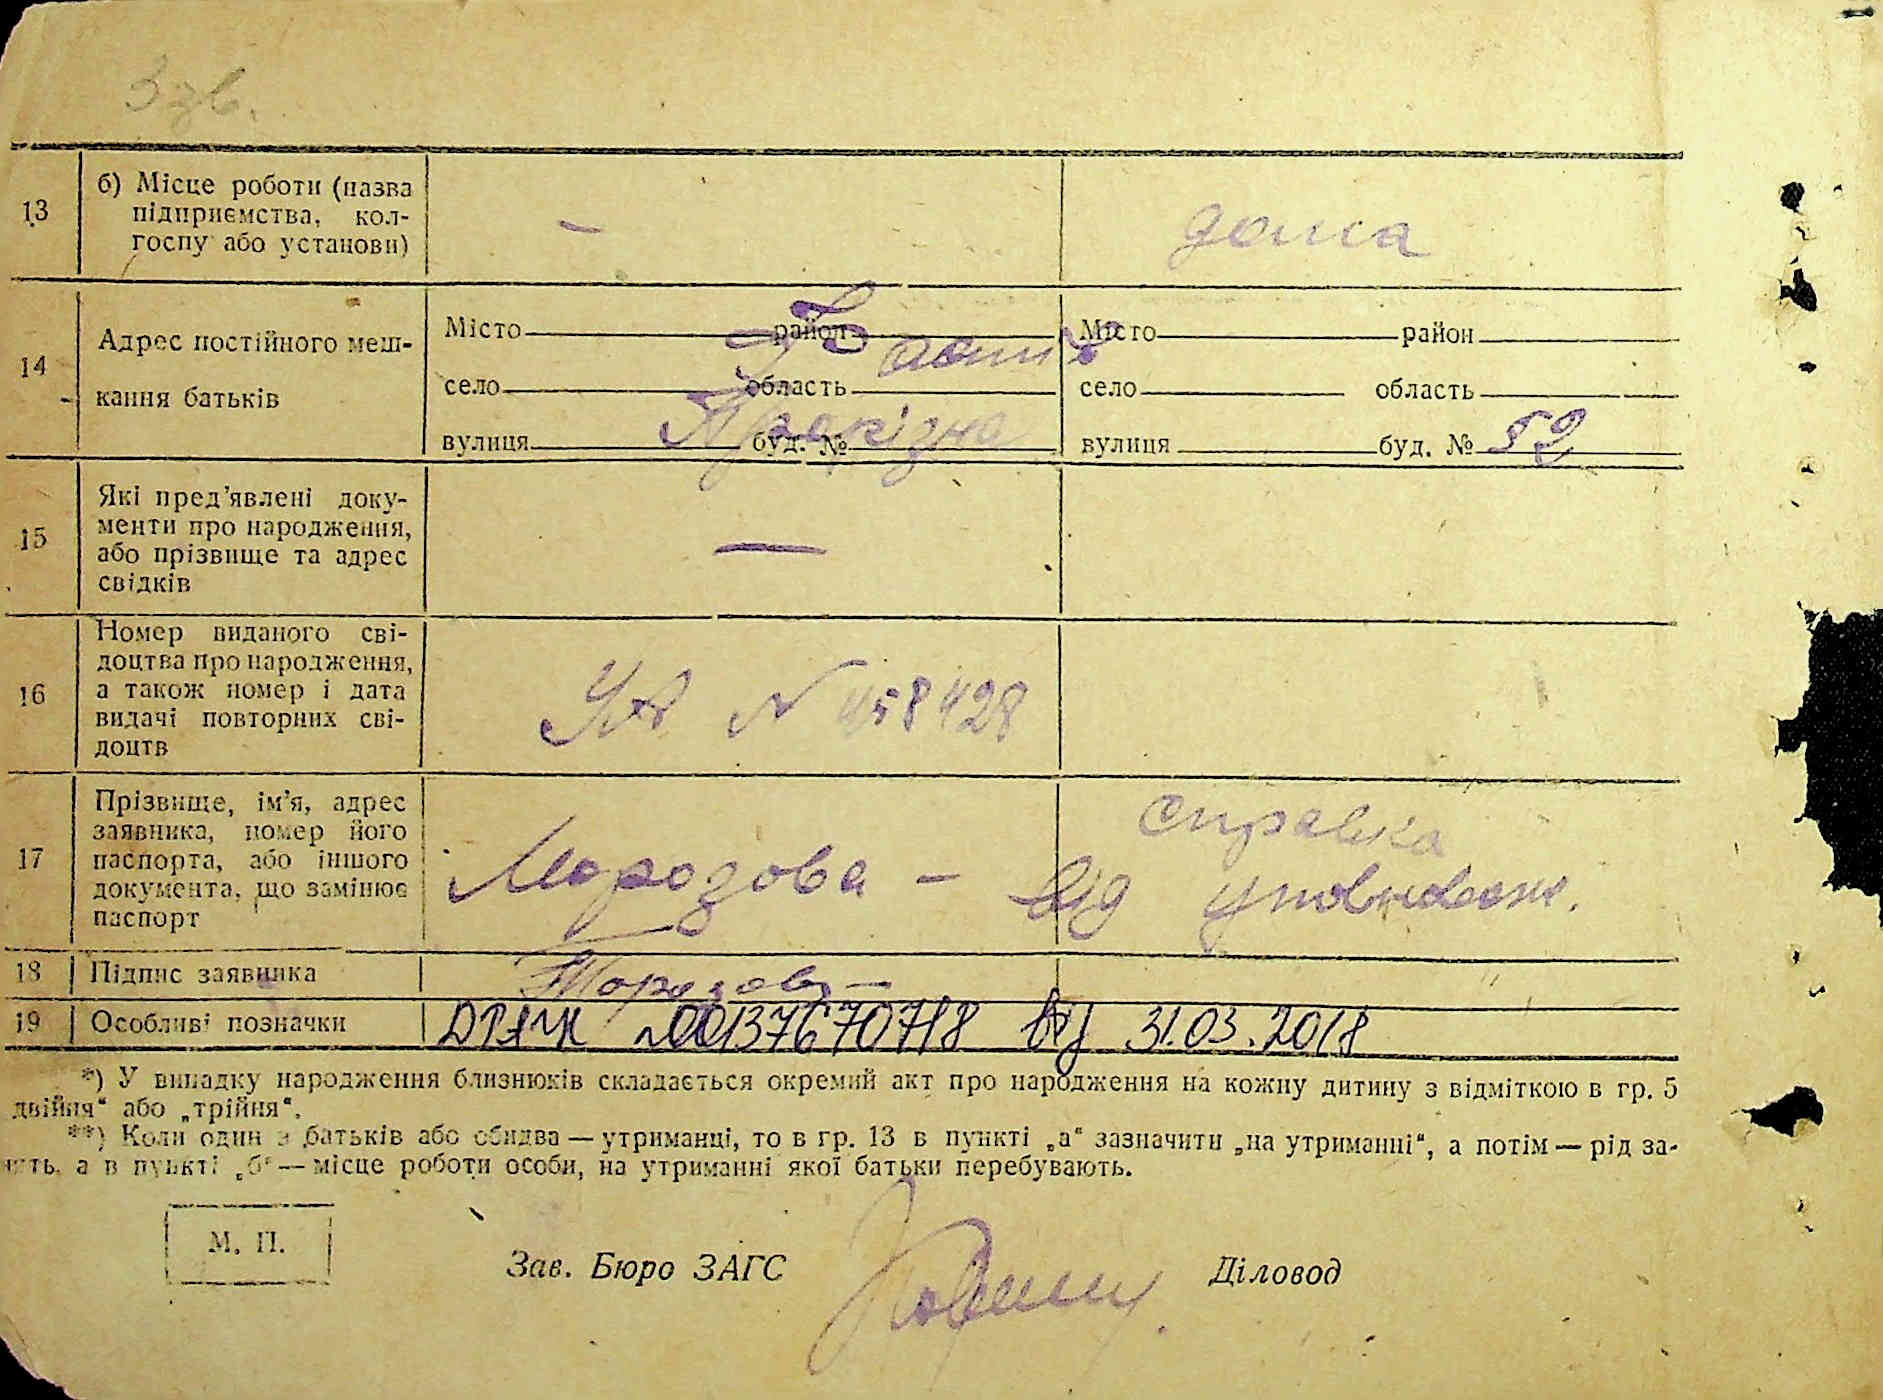 13
б) Місце роботи (назва
підприємства, кол-
госпу або установи)
—
дома
14
Адрес постійного меш-
кання батьків
Місто район
село область
вулиця буд. №
Місто район
село область
вулиця буд. № 52
15
Які пред'явлені доку-
менти про народження,
або прізвище та адрес
свідків
—
16
Номер виданого сві-
доцтва про народження,
а також номер і дата
видачі повторних сві-
доцтв
N 458428
17
Прізвище, ім'я, адрес
заявника, номер його
паспорта, або іншого
документа, що замінює
паспорт
справка
Морозова — від уповноваж.
18
Підпис заявника
Морозова
19
Особливі позначки
00137670718 від 31.03.2018
*) У випадку народження близнюків складається окремий акт про народження на кожну дитину з відміткою в гр. 5
двійня“ або „трійня“.
**) Коли один з батьків або обидва — утриманці, то в гр. 13 в пункті „а“ зазначити „на утриманні“, а потім — рід за-
нять, а в пункті „б“ — місце роботи особи, на утриманні якої батьки перебувають.
М. П.
Зав. Бюро ЗАГС
Діловод